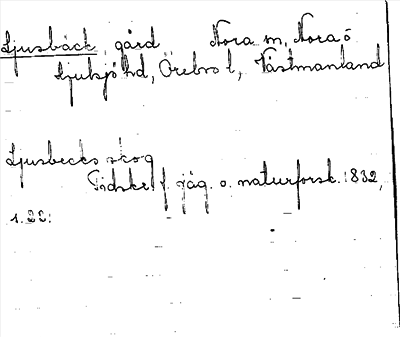 Ljusbäck, gård Nora m, Nora ö
Hjulsjö hd, Örebro l, Västmanland
Ljusbecks skog
Tidskr. f. jäg. o. naturforsk. 1832,
1.22: